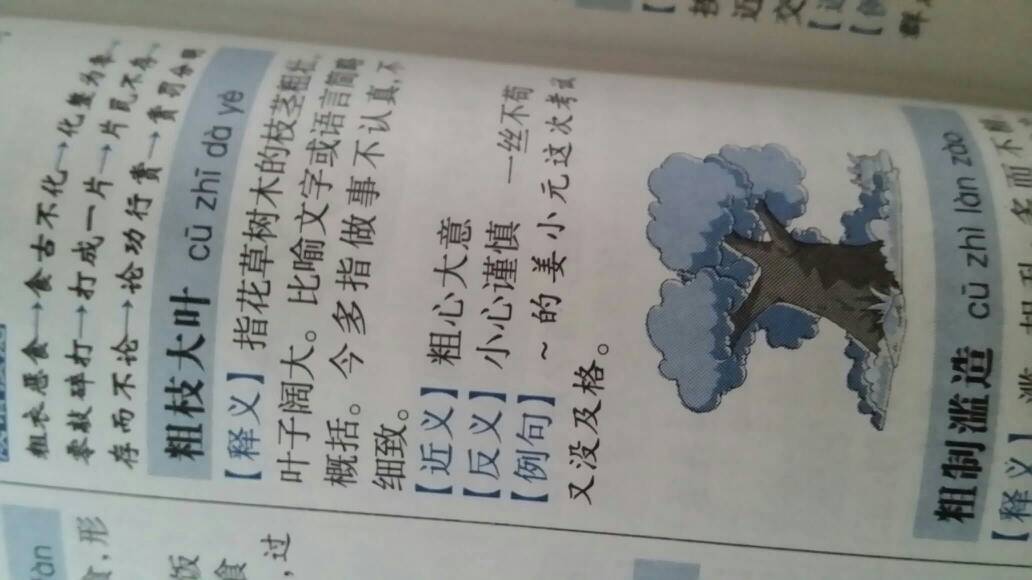 粗衣恶食→食古不化→化整为零、
零敲碎打→打成一片→片瓦不存、
存而不论→论功行赏→赏罚分明
粗枝大叶 cū zhī dà yè
【释义】 指花草树木的枝茎粗壮,
叶子阔大。比喻文字或语言简略
概括。今多指做事不认真,不
细致。
【近义】 粗心大意
【反义】 小心谨慎 一丝不苟
【例句】 ~的姜小元这次考试
又没及格。
粗制滥造 cū zhì làn zào
【释义】 滥
食,形
饭
食
,过